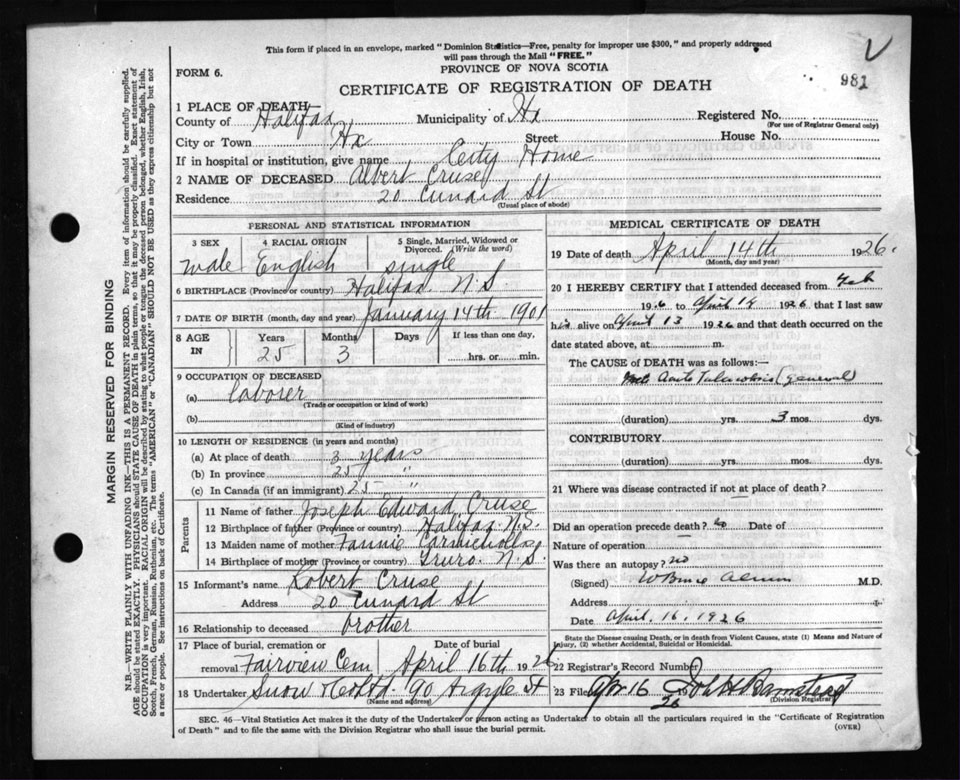 This form if placed in an envelope, marked "Dominion Statistics—Free, penalty for improper use $300," and properly addressed
will pass through the Mail "FREE."
PROVINCE OF NOVA SCOTIA
FORM 6.
981
CERTIFICATE OF REGISTRATION OF DEATH
1 PLACE OF DEATH—
County of Halifax Municipality of Hx Registered No.
(For use of Registrar General only)
City or Town Hx Street House No.
If in hospital or institution, give name City Home
2 NAME OF DECEASED Albert Cruse
Residence 20 Cunard St
(Usual place of abode)
PERSONAL AND STATISTICAL INFORMATION
3 SEX 4 RACIAL ORIGIN 5 Single, Married, Widowed or Divorced. (Write the word)
Male English single
6 BIRTHPLACE (Province or country) Halifax N.S.
7 DATE OF BIRTH (month, day and year) January 14th 1901
8 AGE IN Years Months Days If less than one day,
25 3 hrs. or min.
9 OCCUPATION OF DECEASED
(a) laborer
(Trade or occupation or kind of work)
(b)
(Kind of industry)
10 LENGTH OF RESIDENCE (in years and months)
(a) At place of death 3 years
(b) In province 25 "
(c) In Canada (if an immigrant) 25 "
Parents
11 Name of father Joseph Edward Cruse
12 Birthplace of father (Province or country) Halifax N.S.
13 Maiden name of mother Fannie
14 Birthplace of mother (Province or country) Truro N.S.
15 Informant's name Robert Cruse
Address 20 Cunard St
16 Relationship to deceased brother
17 Place of burial, cremation or removal Date of burial
Fairview Cem April 16th 1926
18 Undertaker Snow & Co Ltd. 90 Argyle St
(Name and address)
MEDICAL CERTIFICATE OF DEATH
19 Date of death April 14th 1926
(Month, day and year)
20 I HEREBY CERTIFY that I attended deceased from Feb
1926 to April 14 1926 that I last saw
his alive on April 13 1926 and that death occurred on the
date stated above, at m.
The CAUSE OF DEATH was as follows:
(general)
(duration) yrs. 3 mos. dys.
CONTRIBUTORY
(duration) yrs. mos. dys.
21 Where was disease contracted if not at place of death?
Did an operation precede death? no Date of
Nature of operation
Was there an autopsy? no
(Signed) M.D.
Address
Date April, 16, 1926
State the Disease causing Death, or in death from Violent Causes, state (1) Means and Nature of
Injury, (2) whether Accidental, Suicidal or Homicidal.
22 Registrar's Record Number
23 Filed Apr 16 1926
(Division Registrar)
SEC. 46—Vital Statistics Act makes it the duty of the Undertaker or person acting as Undertaker to obtain all the particulars required in the "Certificate of Registration
of Death" and to file the same with the Division Registrar who shall issue the burial permit.
(OVER)
MARGIN RESERVED FOR BINDING
N.B.—WRITE PLAINLY WITH UNFADING INK—THIS IS A PERMANENT RECORD. Every item of information should be carefully supplied.
AGE should be stated EXACTLY. PHYSICIANS should STATE CAUSE OF DEATH in plain terms, so that it may be properly classified. Exact statement of
OCCUPATION is very important. RACIAL ORIGIN will be described by stating to what people or tongue the deceased person belonged, whether English, Irish,
Scotch, French, German, Russian, Ruthenian, etc. The terms "AMERICAN" or "CANADIAN" SHOULD NOT BE USED as they express citizenship but not
a race or people. See instructions on back of Certificate.